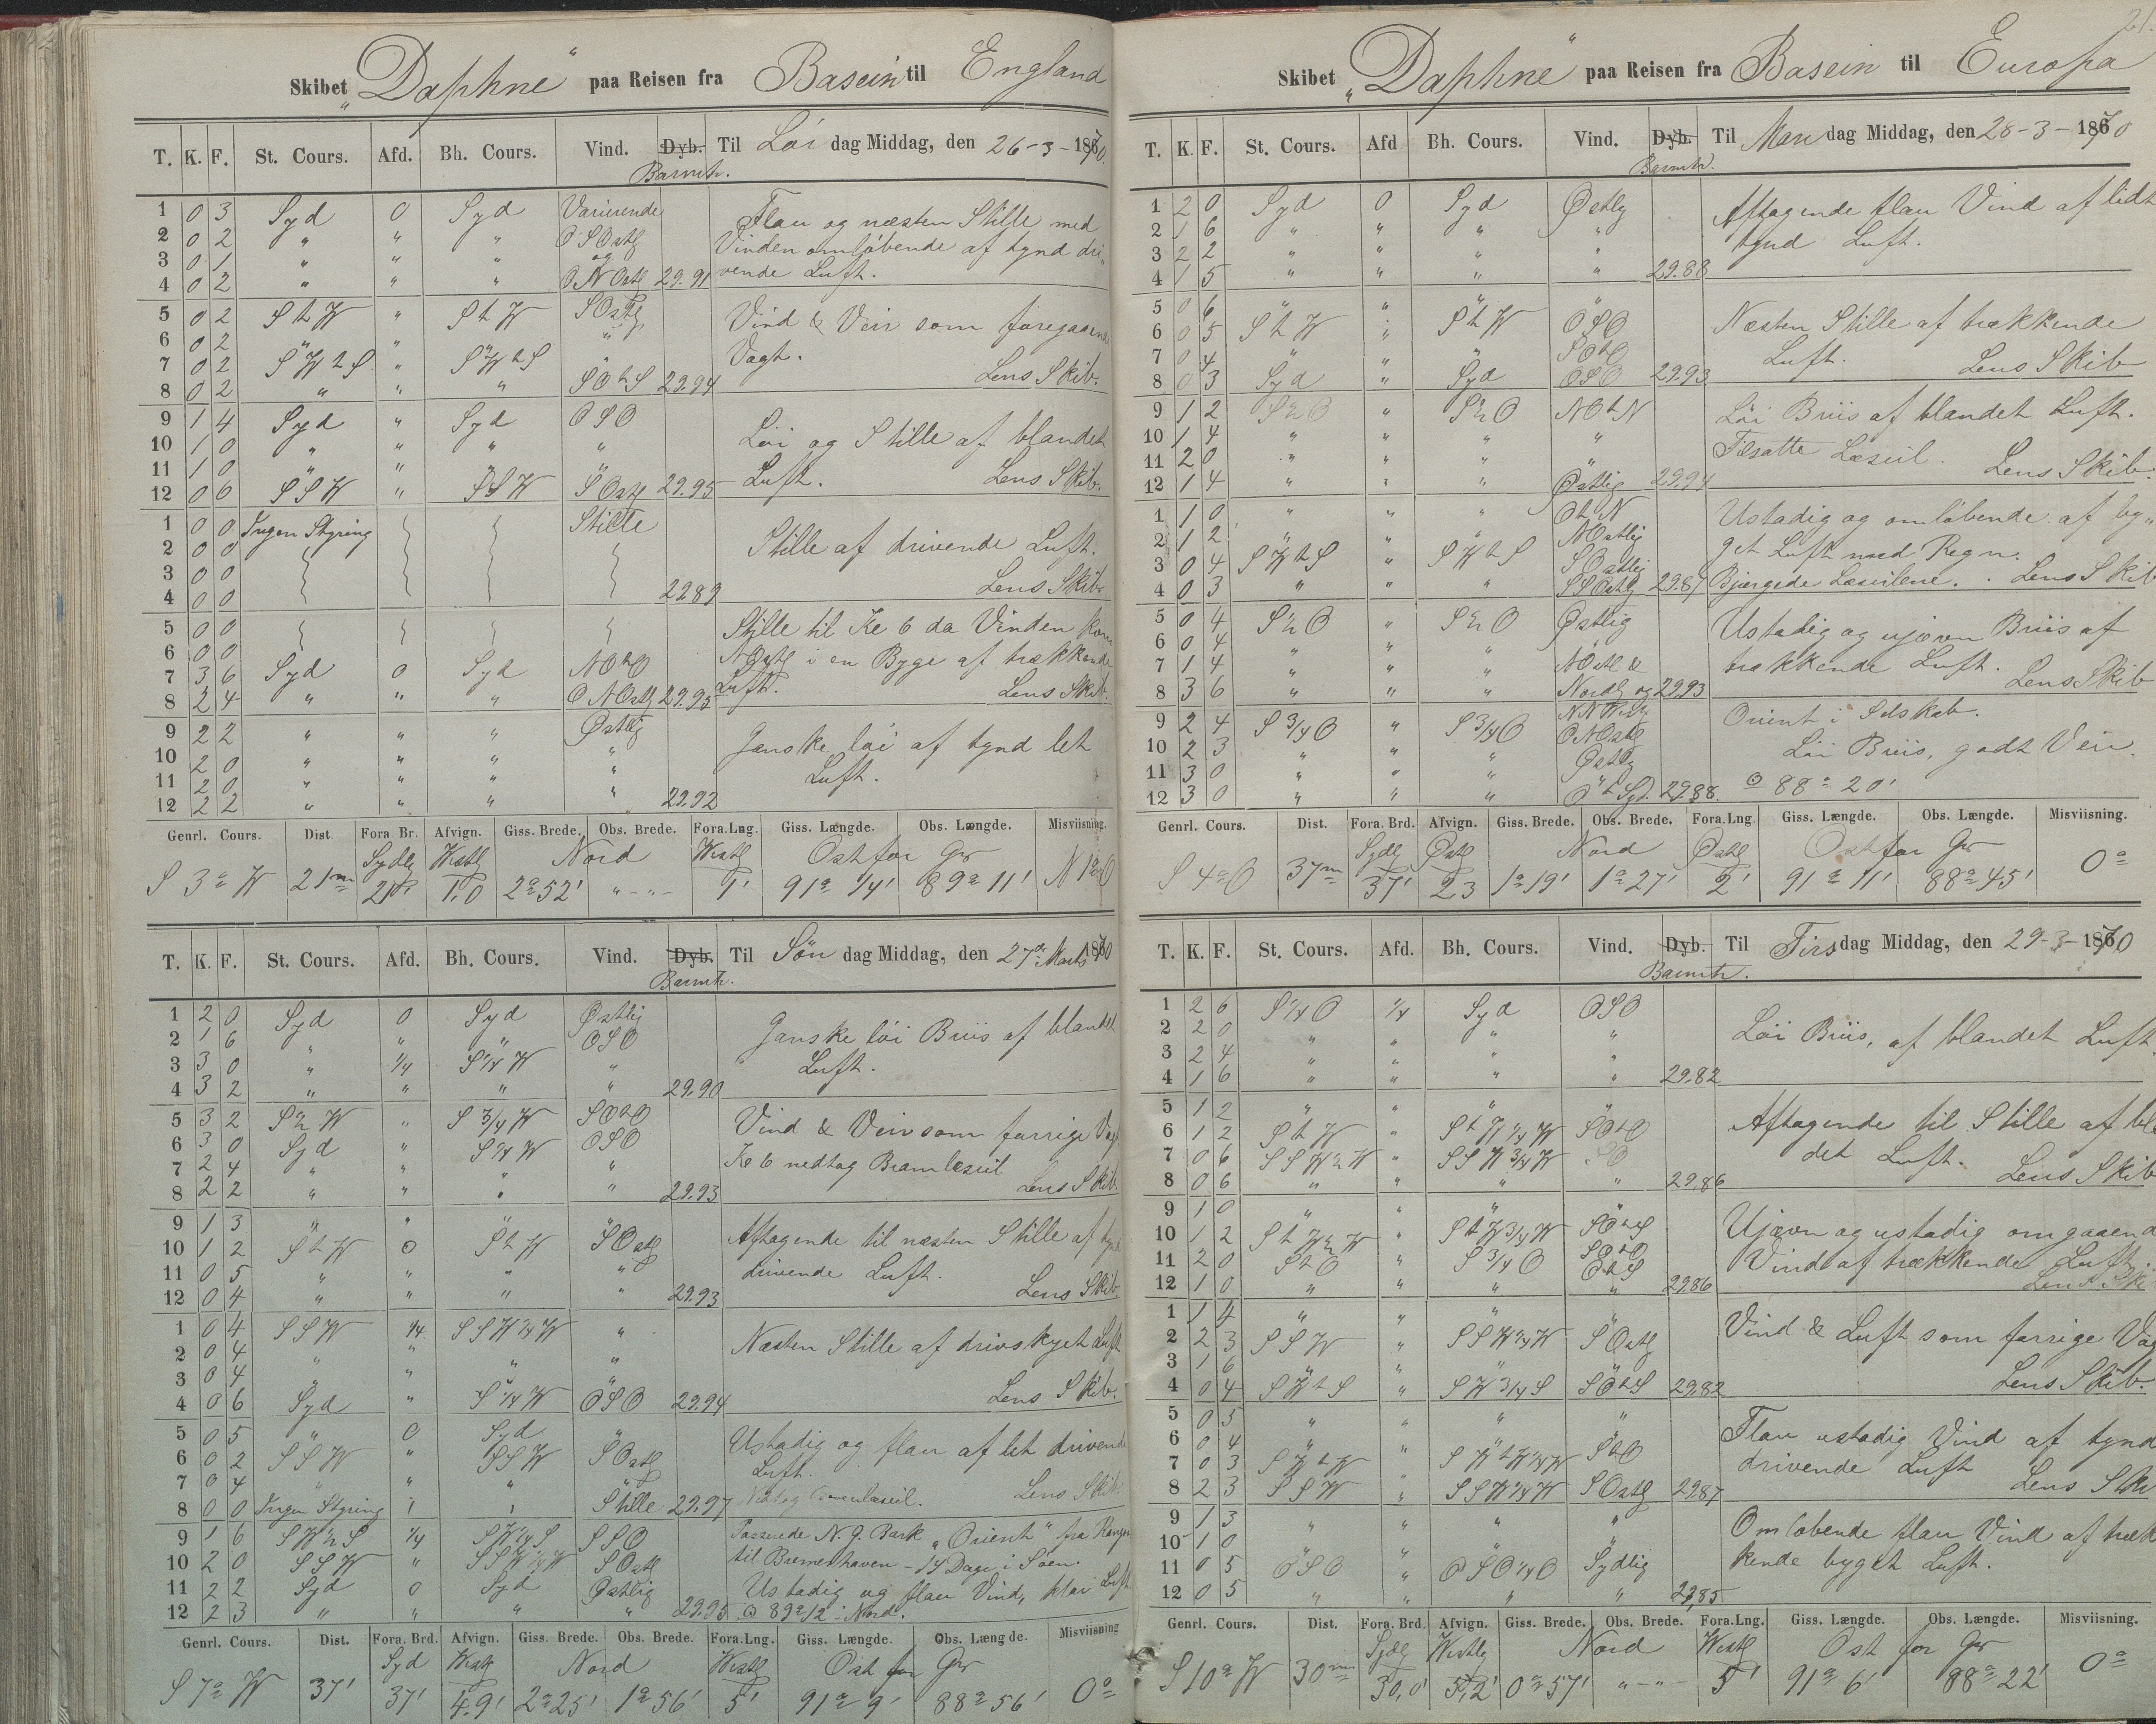 Skibet „Daphne“ paa Reisen fra Basein til England
T. K. F. St. Cours. Afd. Bh. Cours. Vind. Dyb. Barmtr. Til Löi dag Middag, den 26-3-1870.
1 0 3 Syd 0 Syd Varierende Flau og næsten Stille med
2 0 2 " " " OSOstlg Vinden omløbende af tynd dri„
3 0 1 " " " og vende Luft.
4 0 2 " " " ONOstl 29.91
5 0 2 S t W " S t W SOstlg Vind & Veir som foregaaende
6 0 2 " " " " Vagt.
7 0 2 SW t S " SW t S " Lens Skib.
8 0 2 " " " SO t S 29.94
9 1 4 Syd " Syd OSO Löi og Stille af blandet
10 1 0 " " " " Luft. Lens Skib.
11 1 0 " " " "
12 0 6 SSW " SSW SOstlg 29.95
1 0 0 Ingen Styring Stille Stille af drivende Luft.
2 0 0 Lens Skib.
3 0 0
4 0 0 2289
5 0 0 Stille til Kl 6 da Vinden kom
6 0 0 NOstlg i en Byge af trækkende
7 3 6 Syd 0 Syd NO t O Luft. Lens Skib.
8 2 4 " " " ONOstlg 29.95
9 2 2 " " " Østlig Ganske löi af tynd let
10 2 0 " " " " Luft.
11 2 0 " " " "
12 2 2 " " " " 29.92
Genrl. Cours. Dist. Fora. Br. Afvign. Giss. Brede. Obs. Brede. Fora.Lng. Giss. Længde. Obs. Længde. Misviisning.
Sydlg Westlg Nord Westlg Ost for Gr
S 3° W 21m 21' 1.0 2°52' "-"- 1' 91° 14' 89° 11' N 1° O
T. K. F. St. Cours. Afd. Bh. Cours. Vind. Dyb. Barmtr. Til Søn dag Middag, den 27de Marts 1870
1 2 0 Syd 0 Syd Østlig Ganske löi Briis af blandet
2 1 6 " " " OSO Luft.
3 3 0 " 1/4 S 1/4 W "
4 3 2 " " " " 29.90
5 3 2 S ½ W " S 3/4 W SO t O Vind & Veir som forrige Vagt
6 3 0 Syd " S 1/4 W OSO Kl 6 nedtog Bramlæseil
7 2 4 " " " " Lens Skib.
8 2 2 " " " " 29.93
9 1 3 " " " " Aftagende til næsten Stille af tynd
10 1 2 S t W 0 S t W SOstlg drivende Luft.
11 0 5 " " " " Lens Skib.
12 0 4 " " " " 29.93
1 0 4 SSW 1/4 SSW 1/4 W " Næsten Stille af drivskyet Luft
2 0 4 " " " "
3 0 4 " " " " Lens Skib.
4 0 6 Syd " S 1/4 W OSO 29.94
5 0 5 " 0 Syd " Ustadig og flau af let drivende
6 0 2 SSW " SSW SOstlg Luft.
7 0 4 " " " " Lens Skib.
8 0 0 Ingen Styring Stille 29.97 Nedtog læseil.
9 1 6 SW ½ S 1/4 SW 1/4 S SSO Passerede N. G. Bark „Orient“ fra Rangn
10 2 0 SSW " SSW 1/4 W SOstl til Bremerhaven - 14 Dage i Søen.
11 2 2 Syd 0 Syd Østlig Ustadig og flau Vind, klar Luft
12 2 3 " " " " 29.95 ⊙ 89° 12' Nord.
Genrl. Cours. Dist. Fora. Brd. Afvign. Giss. Brede. Obs. Brede. Fora.Lng. Giss. Længde. Obs. Længde. Misviisning
Syd Westl Nord Westlg Ost for Gr
S 7° W 37' 37' 4.9' 2°25' 1°56' 5' 91° 9' 88° 56' 0°
21.
Skibet „Daphne“ paa Reisen fra Basein til Europa
T. K. F. St. Cours. Afd Bh. Cours. Vind. Dyb. Barmtr. Til Man dag Middag, den 28-3-1870
1 2 0 Syd 0 Syd Østlg Aftagende flau Vind af lidt
2 1 6 " " " " tynd Luft.
3 2 2 " " " "
4 1 5 " " " " 29.88
5 0 6 " " " " Næsten Stille af trækkende
6 0 5 S t W " S t W OSO Luft.
7 0 4 " " " SO t O Lens Skib
8 0 3 Syd " Syd OSO 29.93
9 1 2 S ½ O " S ½ O NO t N Löi Briis af blandet Luft.
10 1 4 " " " " Tilsatte Læseil. Lens Skib.
11 2 0 " " " "
12 1 4 " " " Østlig 29.94
1 1 0 " " " O t N Ustadig og omløbende af by„
2 1 2 " " " NOstlig get Luft med Regn.
3 0 4 SW t S " SW t S SOstlig Bjærgede Læseilene. Lens Skib
4 0 3 " " " SSOstlg 29.87
5 0 4 S ½ O " S ½ O Østlig Ustadig og ujævn Briis af
6 0 4 " " " " trækkende Luft.
7 1 4 " " " NOstl & Lens Skib
8 3 6 " " " Nordlg og 29.93
9 2 4 S 3/4 O " S 3/4 O NNWestl Orient i Selskab.
10 2 3 " " " ONOstlg Löi Briis, godt Veir.
11 3 0 " " " Østlg
12 3 0 " " " O t Syd. 29.88. ⊙ 88° 20'
Genrl. Cours. Dist. Fora. Brd. Afvign. Giss. Brede. Obs. Brede. Fora.Lng Giss. Længde. Obs. Længde. Misviisning.
Sydlg Østl Nord Østlg Ost for Gr
S 4° O 37m 37' 2,3 1° 19' 1° 27' 2' 91° 11' 88° 45' 0°
T. K. F. St. Cours. Afd. Bh. Cours. Vind. Dyb. Barmtr. Til Tirs dag Middag, den 29-3-1870
1 2 6 S 1/4 O 1/4 Syd OSO Löi Briis, af blandet Luft
2 2 0 " " " "
3 2 4 " " " "
4 1 6 " " " " 29.82
5 1 2 " " " " Aftagende til Stille af
6 1 2 S t W " S t W 1/4 W SO t O det Luft.
7 0 6 SSW ½ W " SSW 3/4 W SO Lens Skib
8 0 6 " " " " 29.86
9 1 0 " " " " Ujævn og ustadig omgaaend
10 1 2 S t W ½ W " S t W 3/4 W SO t S Vind af trækkende Luft.
11 2 0 S t O " S 3/4 O SO t O
O t S
12 1 0 " " " " 29.86
1 1 4 " " " " Vind & Luft som forrige Vag
2 2 3 SSW " SSW 1/4 W SOstlg
3 1 6 " " " " Lens Skib.
4 0 4 SW t S " SW 3/4 S SO t S 29.82
5 0 5 " " " " Flau ustadig Vind af tynd
6 0 4 " " " " drivende Luft
7 0 3 SW t W " SW t W 1/4 W S t O
8 2 3 SSW " SSW 1/4 W SOstlg 29.87
9 1 3 " " " " Omløbende flau Vind af træk
10 1 0 " " " " kende byget Luft.
11 0 5 OSO " OSO 1/4 O Sydlig
12 0 5 " " " " 29,85
Genrl. Cours. Dist. Fora. Brd. Afvign. Giss. Brede. Obs. Brede. Fora.Lng. Giss. Længde. Obs. Længde. Misviisning.
Sydlg Westlg Nord Westlg Ost for Gr
S 10° W 30m 30,0' 5,2' 0° 57' "-"- 5' 91° 6' 88° 22' 0°